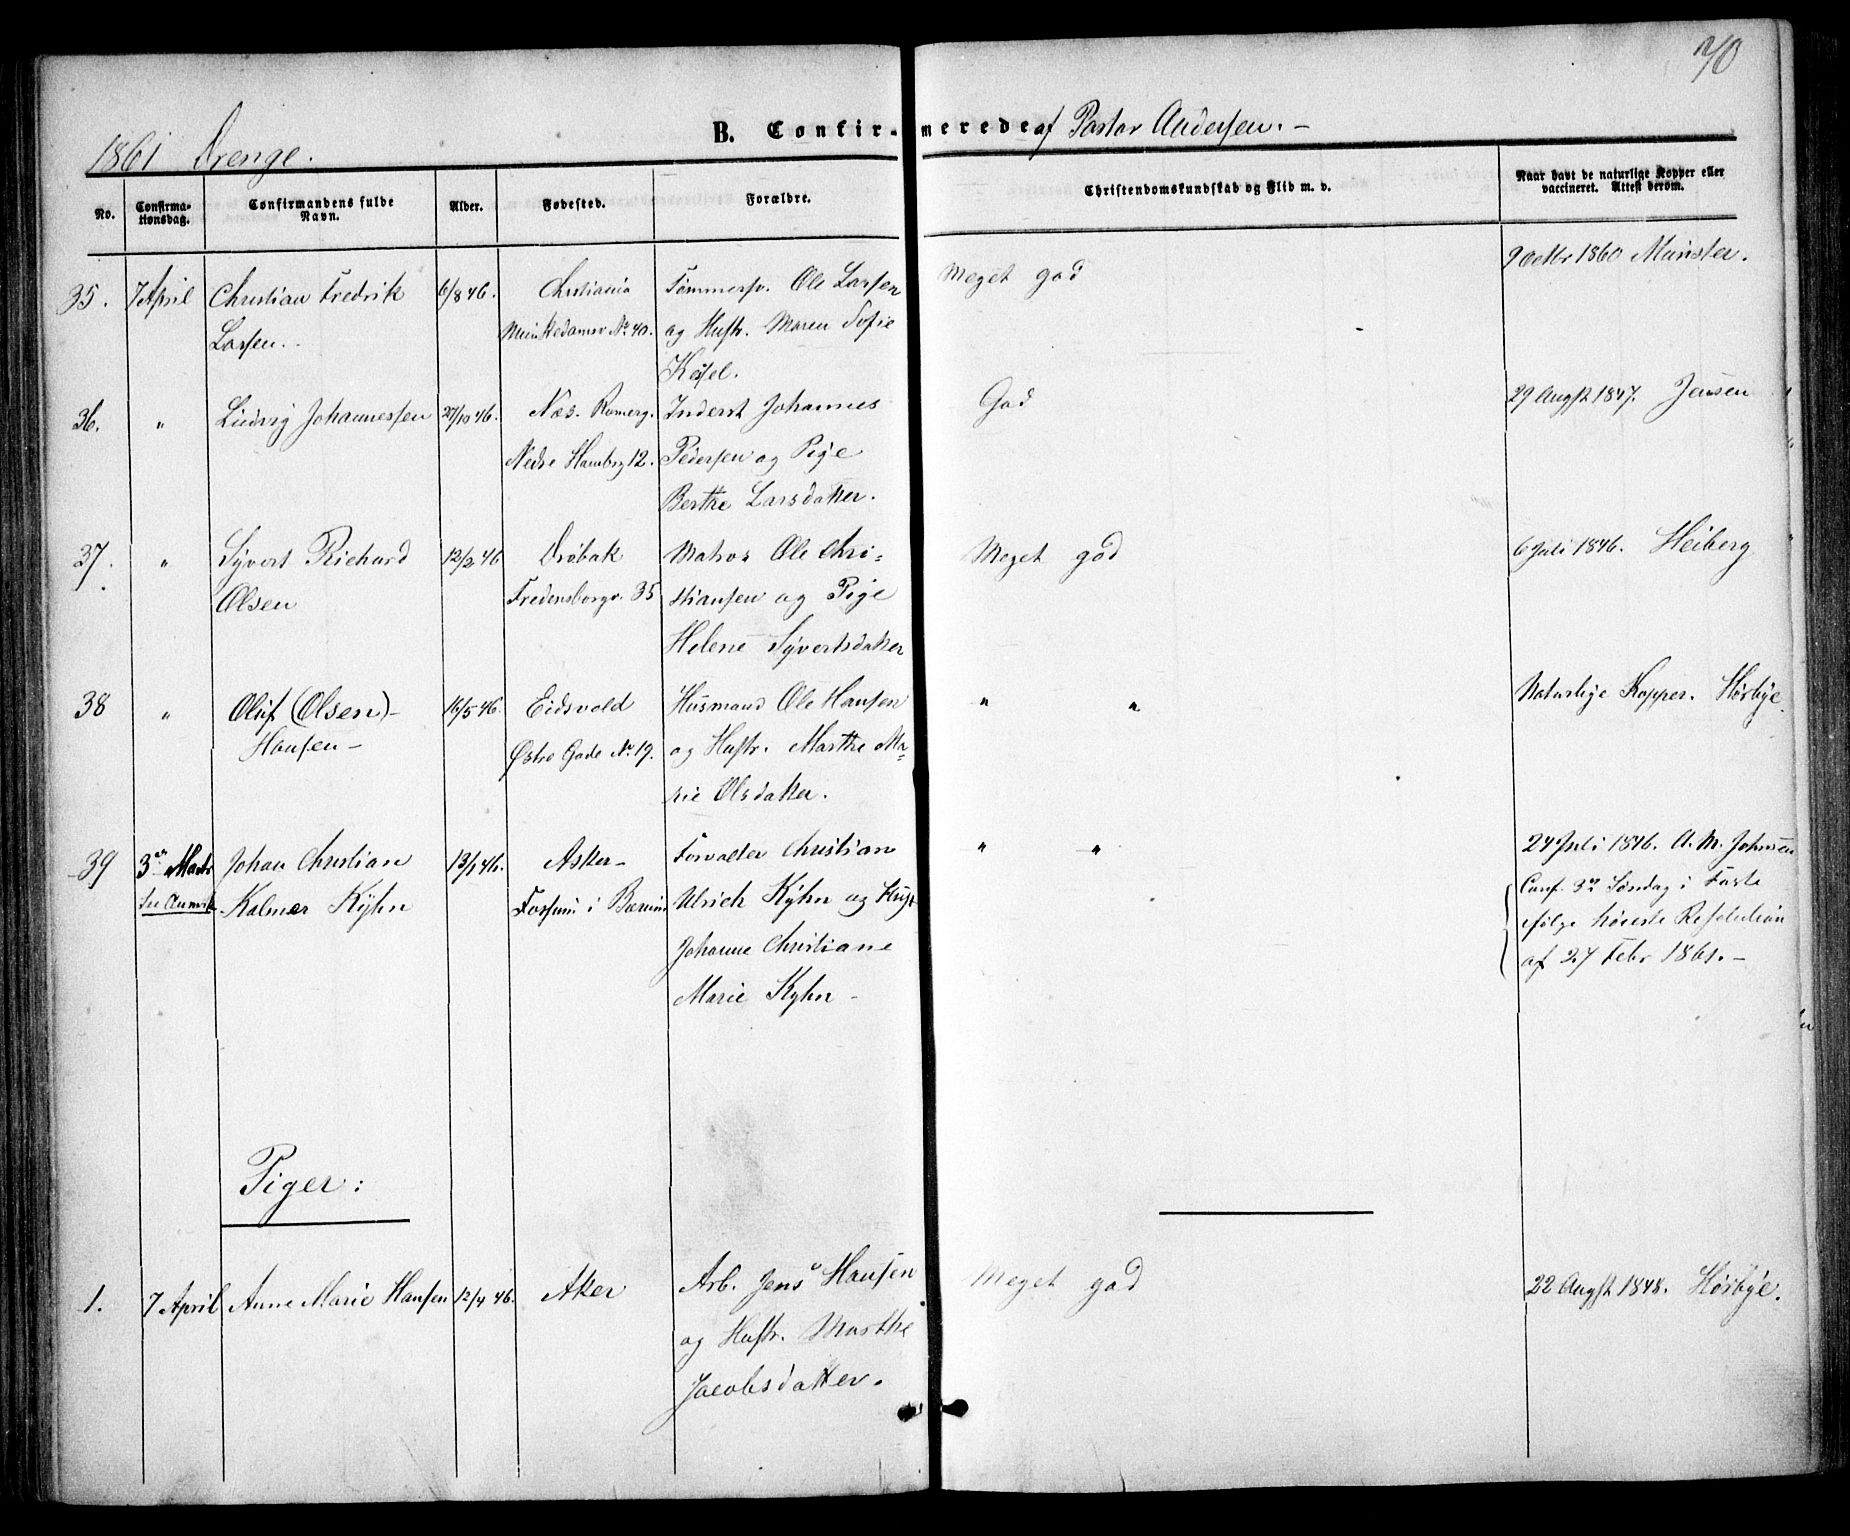 1861 Drenge.
B. Confirmerede af Pastor Andersen. –
No.
Confirmationsdag.
Confirmandens fulde Navn.
Alder.
Fødested.
Forældre.
Christendomskundskab og Flid m. v.
Naar havt de naturlige Kopper eller vaccineret. Attest derom.
35. 7 April Christian Fredrik 6/8 46. Christiania Tømmersv. Ole Larsen Meget god 9 Octbr 1860 Münster.
Larsen. Munkedamsv No. 40. og Hustr. Maren Sofie
36. " Ludvig Johannessen 27/10 46. Næs. Romerg. Inderst Johannes God 29 Augst 1847. Jensen
Nedre Hambrg 12. Pedersen og Pige
Berthe Larsdatter.
37. " Syvert Richard 12/2 46 Drøbak Matros Ole Chri- Meget god 6 Juli 1846. Heiberg
Olsen Fredensborgv. 35 stiansen og Pige
Helene Syvertsdatter
38 " Oluf (Olsen) – 16/5 46. Eidsvold Husmand Ole Hansen " " Naturlige Kopper. Hørbye.
Hansen – Østre Gade No. 19. og Hustr. Marthe Ma-
rie Olsdatter.
39 3 Marts Johan Christian 13/1 46. Asker – Forvalter Christian " " 24 Juli 1846. A. M. Johnsen
Kalmer Kyhn Fossum i Bærum Ulrich Kyhn og Conf. 3 Søndag i Faste
Johanne Christiane ifølge høieste Resolution
Marie Kyhn – af 27 Febr 1861. –
Piger:
1. 7 April Anne Marie Hansen 12/4 46. Aker Arb. Jens Hansen Meget god 22 Augst 1848. Hørbye.
og Hustr. Marthe
Jacobsdatter.